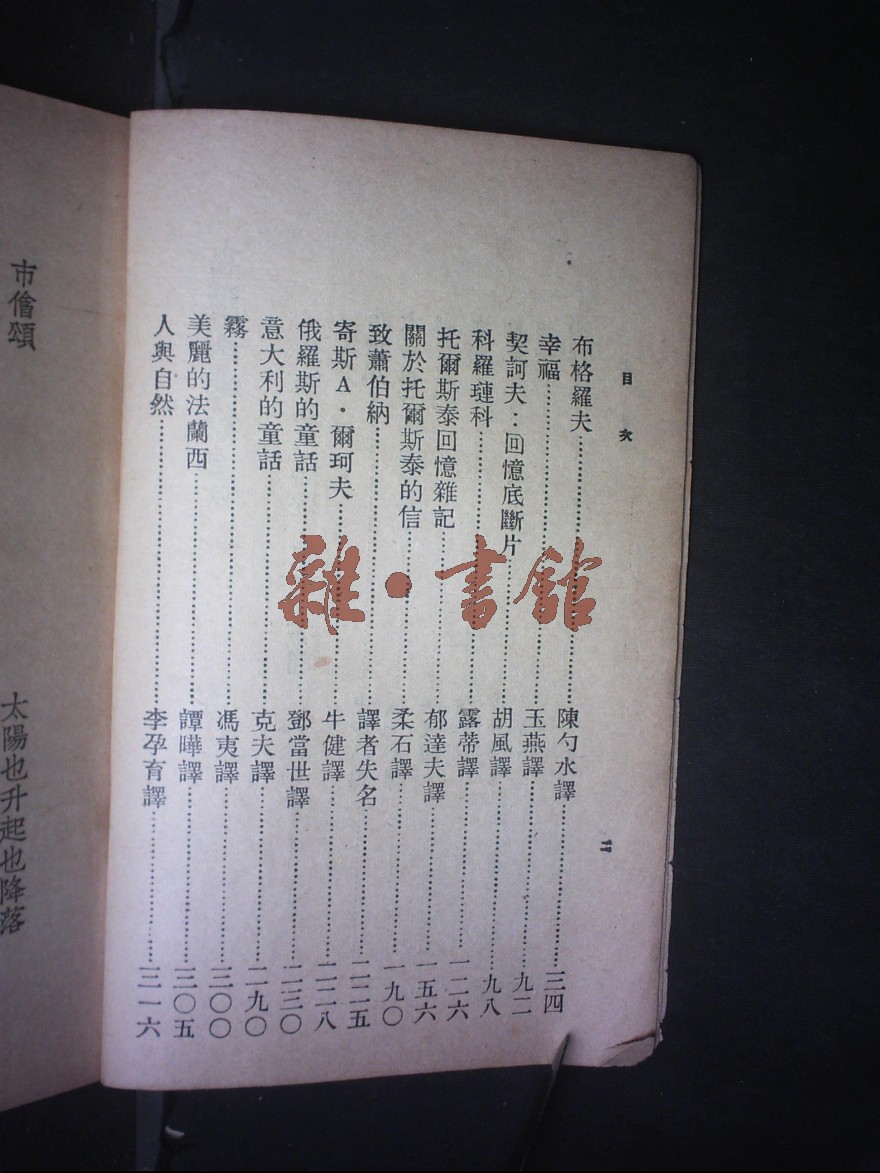 目次
布格羅夫……陳勺水譯……三四
幸福……玉燕譯……九二
契訶夫：回憶底斷片……胡風譯……九八
科羅璉科……露蒂譯……一二六
托爾斯泰回憶雜記……郁達夫譯……一五六
關於托爾斯泰的信……柔石譯……一九〇
致蕭伯納……譯者失名……二二五
寄斯A·爾珂夫……牛健譯……二二八
俄羅斯的童話……鄧當世譯……二三〇
意大利的童話……克夫譯……二九〇
霧……馮夷譯……三〇〇
美麗的法蘭西……譚曄譯……三〇五
人與自然……李孕育譯……三一六
市儈頌
太陽也升起也降落
雜·書館